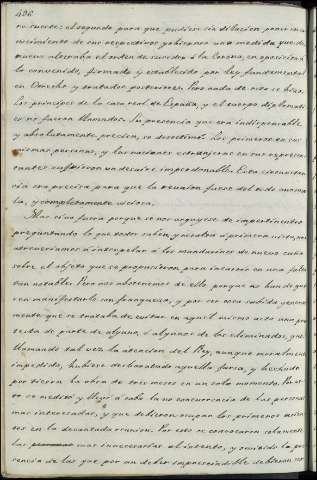 496
no suerte: el segundo para que pudiese sin dilacion poner en co-
nocimiento de sus respectivos gobiernos una medida, que de
nuevo alteraba el orden de suceder á la Corona, en oposicion á
lo convenido, firmado y establecido por ley fundamental
en Derecho y tratados posteriores. Pero nada de esto se hizo.
Los principes de la casa real de España, y el cuerpo diplomati-
co no fueron llamados. Su presencia que era indispensable
y absolutamente precisa, se desestimó. Los primeros en sus
mismas personas, y las naciones extranjeras en sus represen-
tantes sufrieron un desaire imperdonable. Esta circunstan-
cia era precisa para que la reunion fuese del todo anoma-
la, y completamente viciosa.
Mas si no fuera porque se nos arguyese de impertinentes
preguntando lo que todos saben, y notaron á primera vista, nos
atreveriamos á interpelar á los mandarines de nuevo cuño
sobre el objeto que se propusieron para incurrir en una falta
tan notable. Pero nos abstenemos de ello porque no han de que-
rer manifestarlo con franqueza, y por ser cosa sabida general-
mente que se trataba de evitar en aquel mismo acto una pro-
testa de parte de alguno, ó algunos de los eliminados, que
llamando tal vez la atencion del Rey, aunque moralmente
impedido, hubiese desbaratado aquella farsa, y hechado
por tierra la obra de tres meses en un solo momento. Por es-
to se meditó y llegó á cabo la no concurrencia de las personas
mas interesadas, y que debieron ocupar los primeros asien-
tos en la decantada reunion. Por esto se convocaron solamente
las mas innecesarias al intento, y omitido la pre-
sencia de las que por un deber imprescindible debieran ser